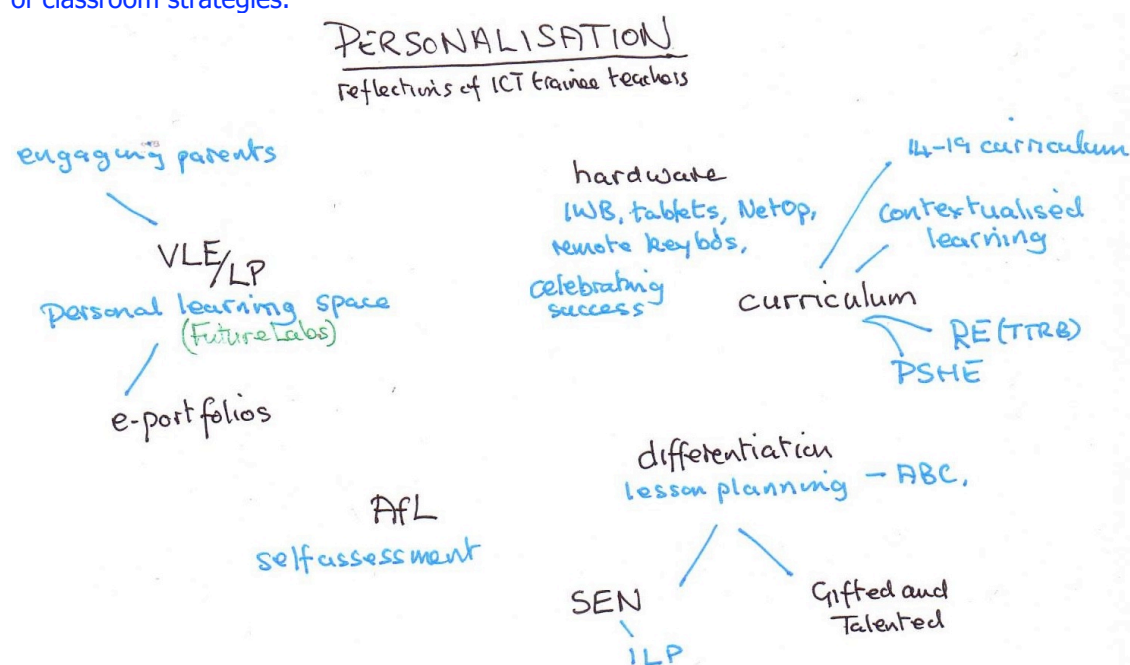 or classroom strategies.
PERSONALISATION
reflections of ICT trainee teachers
engaging parents
VLE/LP
personal learning space
(FutureLabs)
e-portfolios
hardware
IWB, tablets, NetOp,
remote keybds,
celebrating
success
14-19 curriculum
contextualised
learning
curriculum
RE (TTRB)
PSHE
AfL
self assessment
differentiation
lesson planning - ABC,
SEN
ILP
Gifted and
Talented